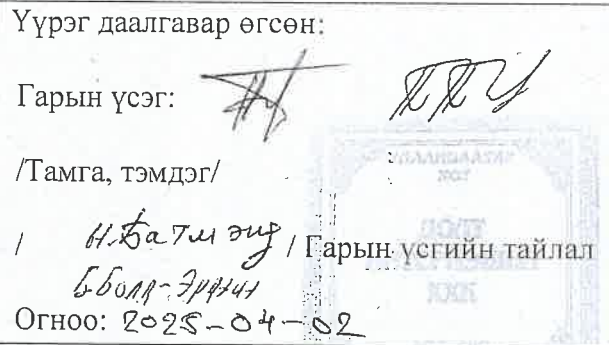 Үүрэг даалгавар өгсөн:
Гарын үсэг:
/Тамга, тэмдэг/
УЛААНБААТАР
ХОТ
ХХК
/ Н.Батмэнд / Гарын үсгийн тайлал
Б.Болд-Эрдэнэ
Огноо: 2025-04-02